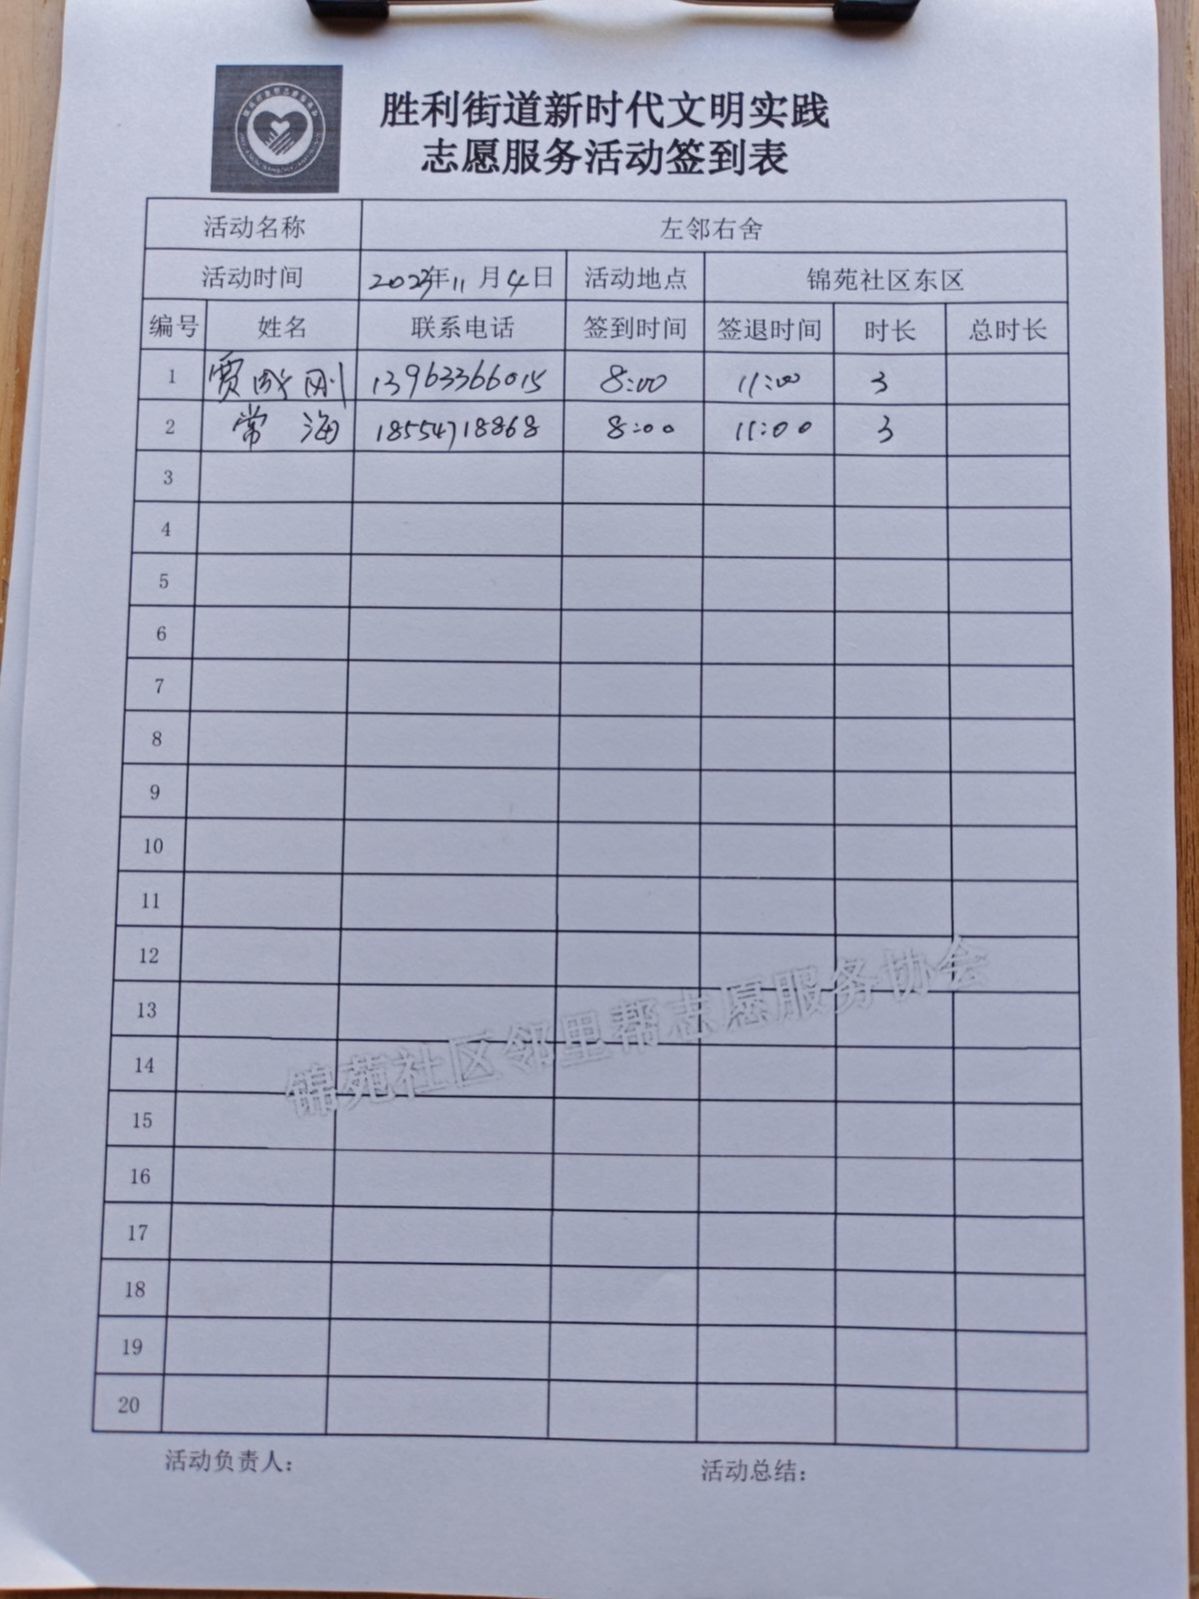 胜利街道新时代文明实践
志愿服务活动签到表
活动名称 左邻右舍
活动时间 2023年11月4日 活动地点 锦苑社区东区
编号 姓名 联系电话 签到时间 签退时间 时长 总时长
1 贾成刚 13963366015 8:00 11:00 3
2 常海 18554718868 8:00 11:00 3
3
4
5
6
7
8
9
10
11
12
13
14
15
16
17
18
19
20
锦苑社区邻里帮志愿服务协会
活动负责人: 活动总结: